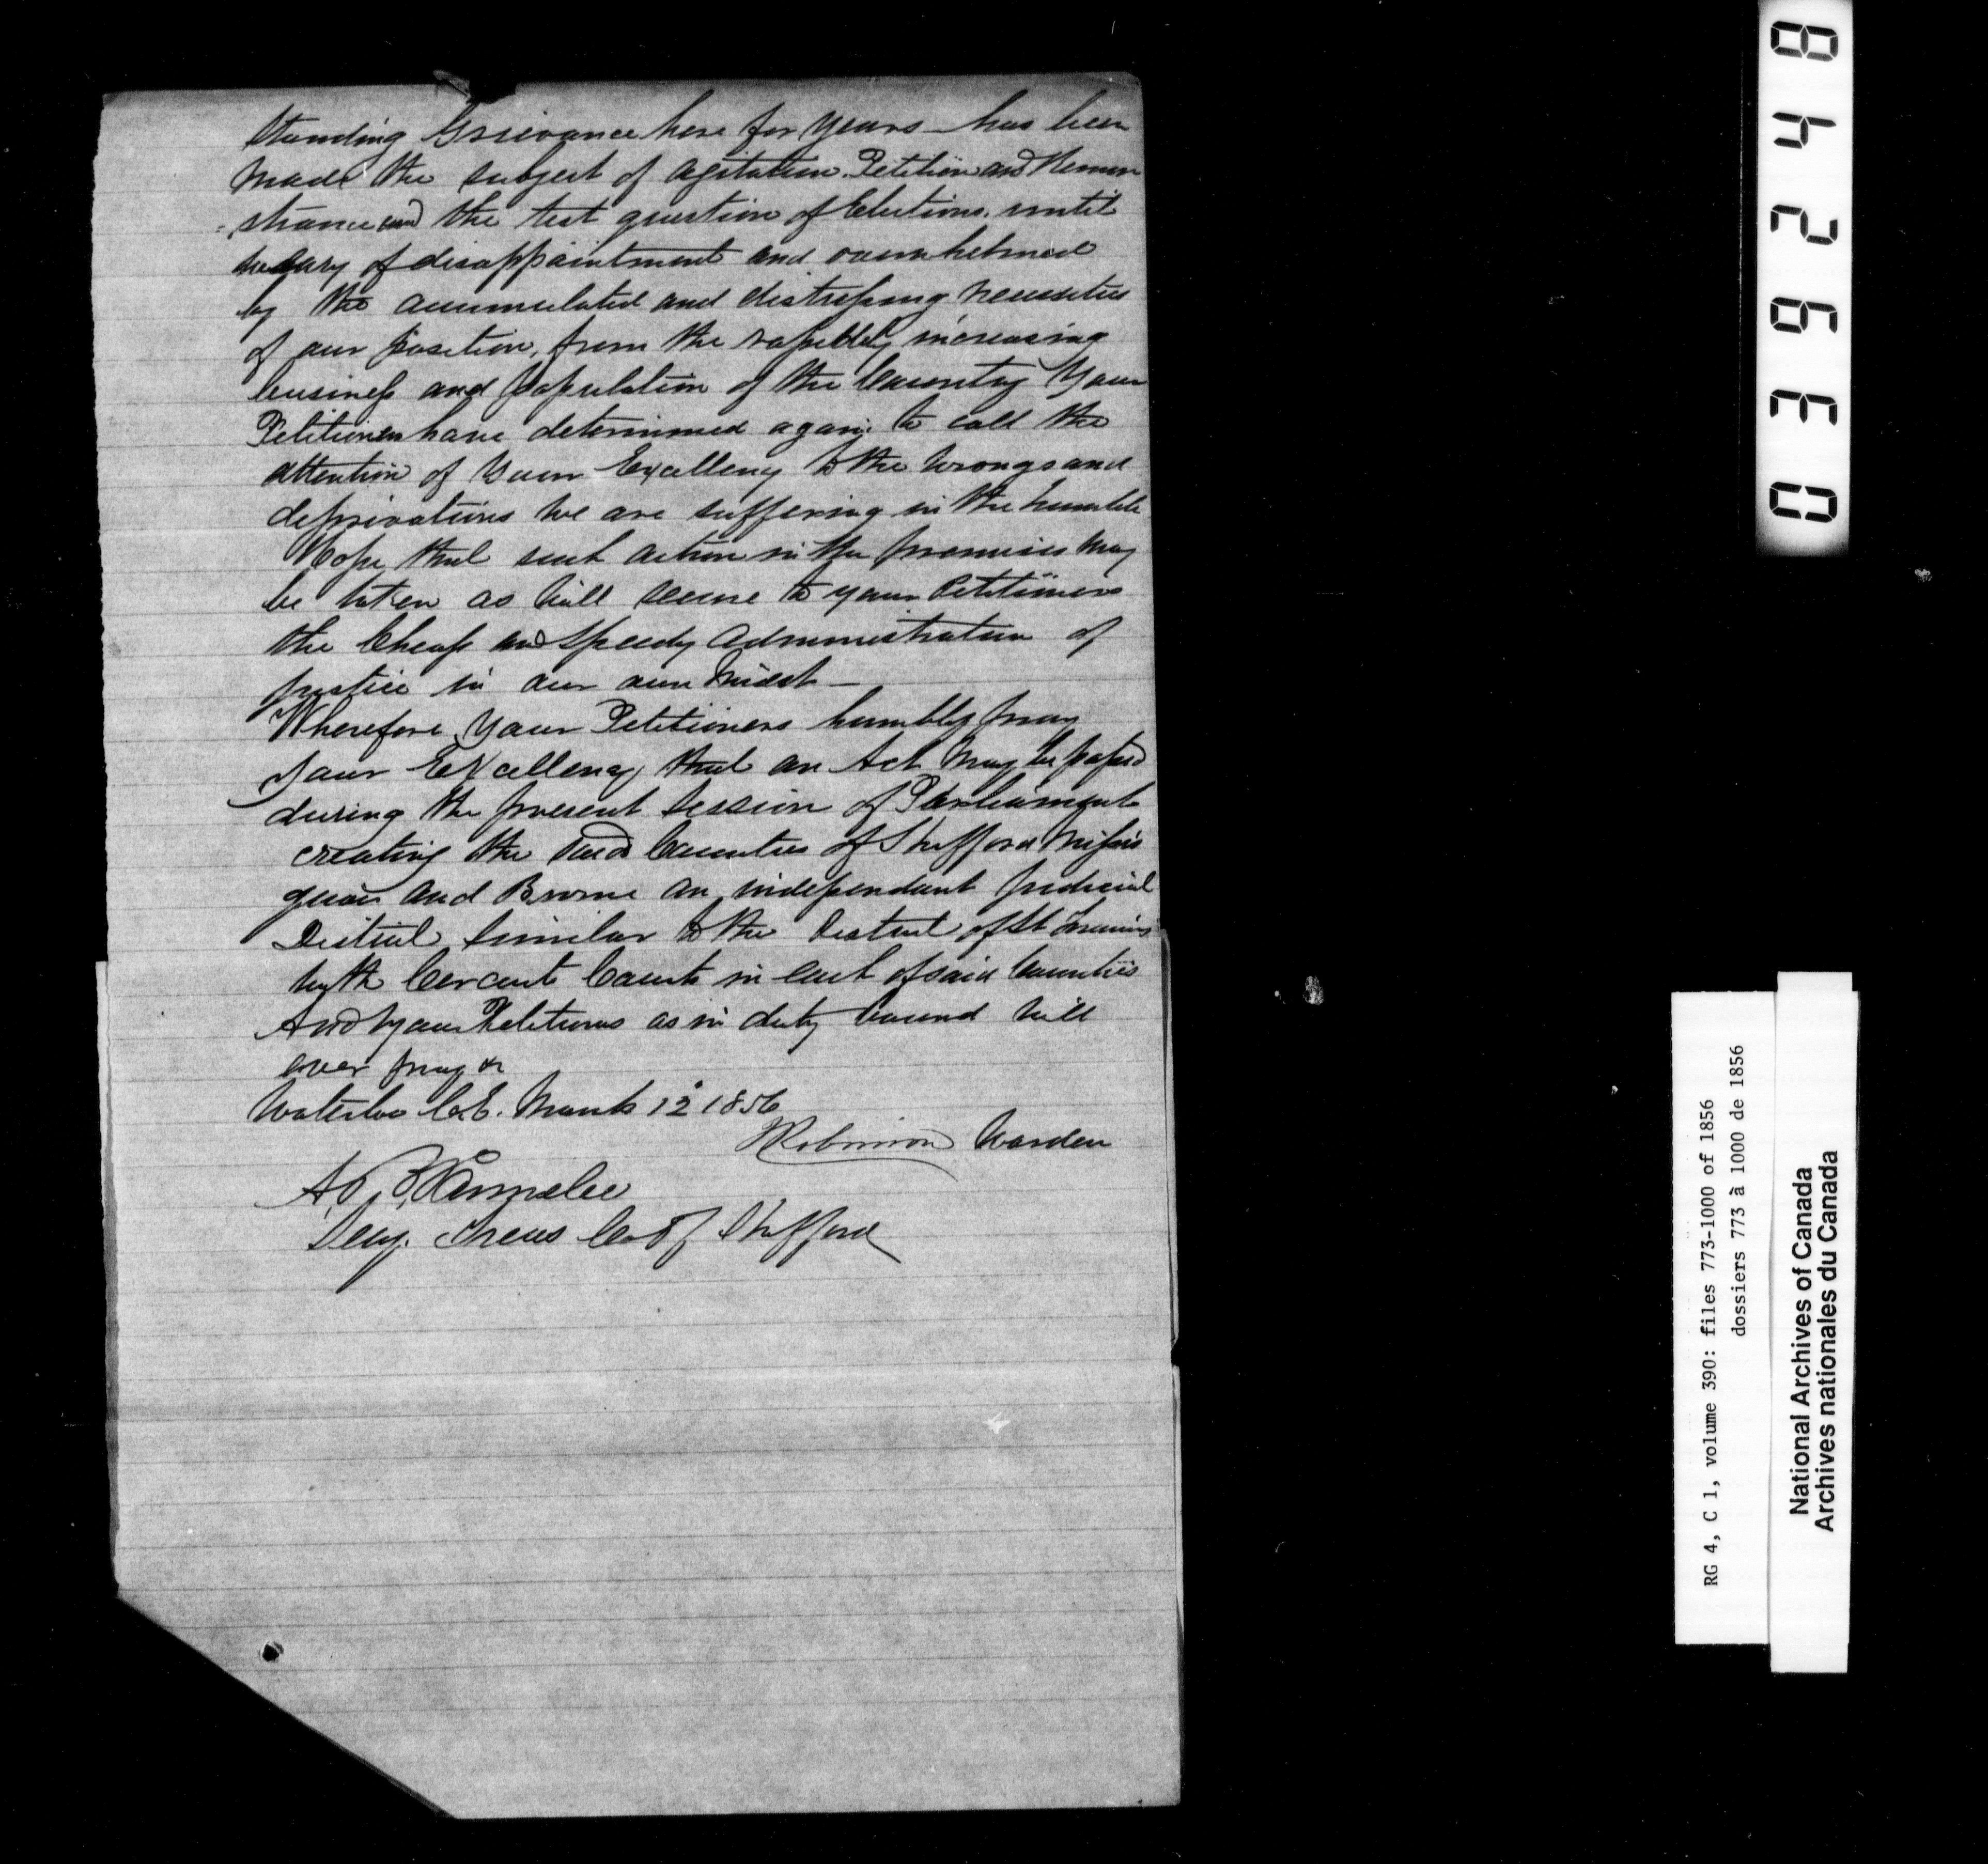 standing Grievance here for years - has been
made the subject of agitation. Petition and Remon
=strance and the test question of Elections. until
weary of disappointment and overwhelmed
by the accumulated and distressing necessities
of our position, from the rapidly increasing
business and population of the Country Your
Petitioners have determined again to call the
attention of Your Excellency to the wrongs and
deprivations we are suffering in the humble
hope that such action in the premises may
be taken as will secure to your Petitioners
the Cheap and Speedy administration of
justice in our own Midst —
Wherefore Your Petitioners humbly pray
Your Excellency that an Act may be passed
during the present Session of Parliament
creating the said Counties of Shefford Missis
quoi and Brome an independant judicial
District similar to the District of St Francis
with Circuit Courts in each of said Counties
And your Petitioners as in duty bound will
ever pray &
Waterloo C.E. March 12 1856
Robinson Warden
A. B. Parmelee
Secy. Treas Co of Shefford
039248
RG 4, C 1, volume 390: files 773-1000 of 1856
dossiers 773 à 1000 de 1856
National Archives of Canada
Archives nationales du Canada